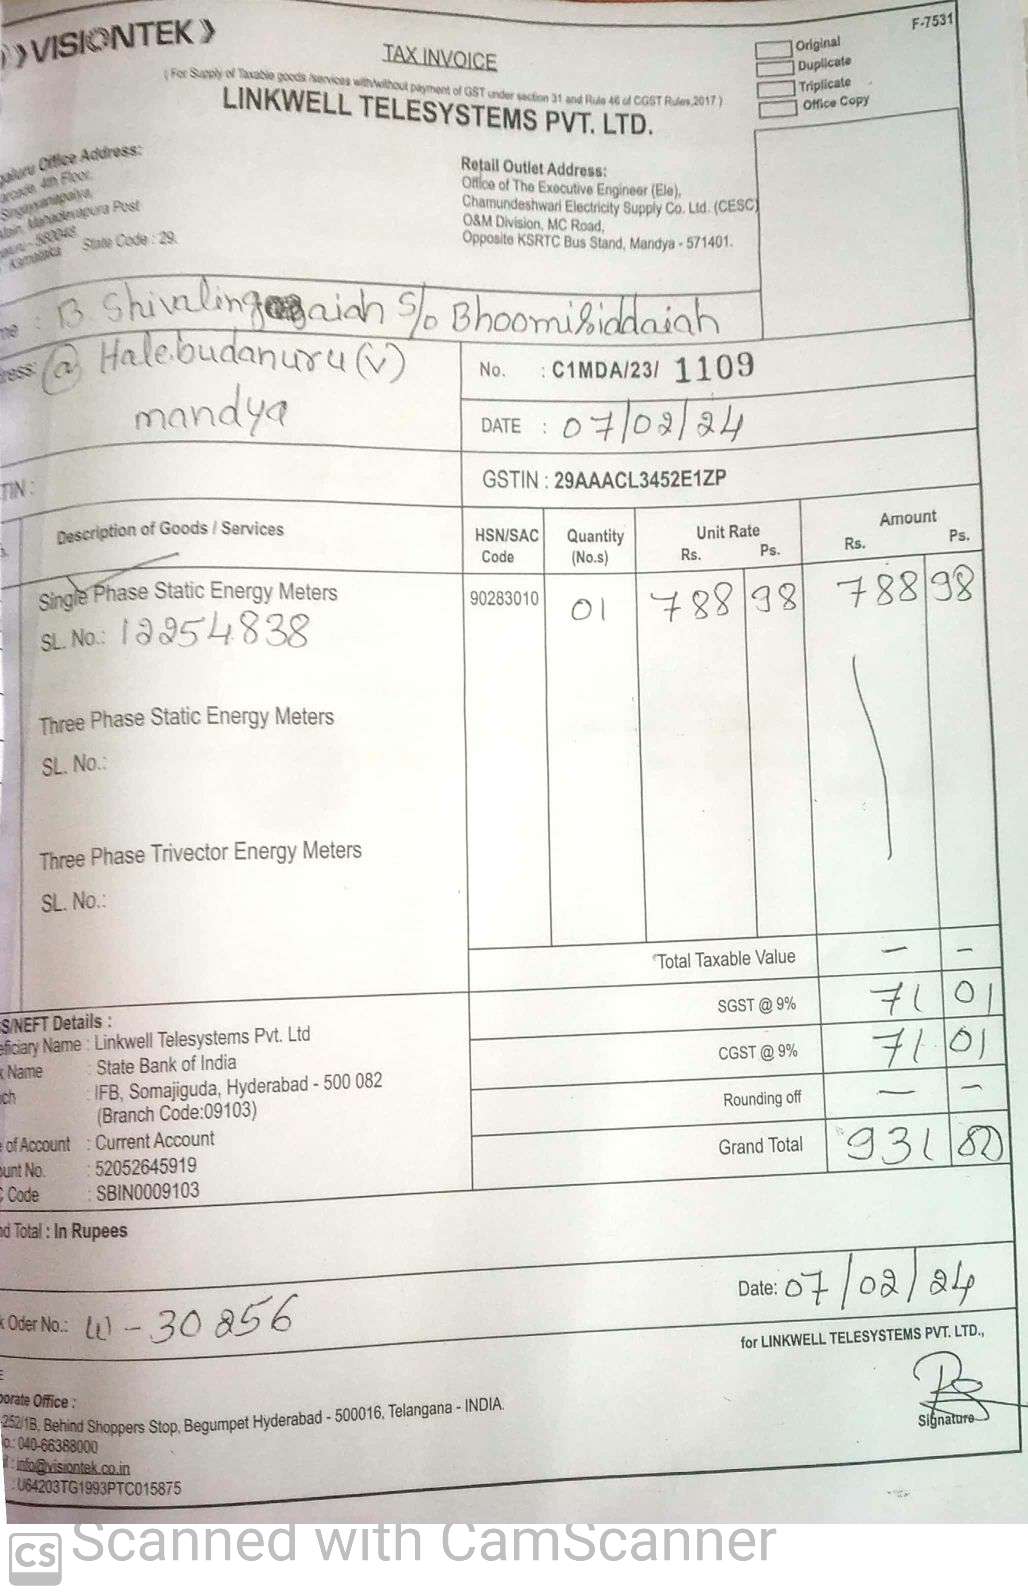 VISIONTEK
F-7531
TAX INVOICE
Original
Duplicate
Triplicate
Office Copy
( For Supply of Taxable goods /services with/without payment of GST under section 31 and Rule 46 of CGST Rules,2017 )
LINKWELL TELESYSTEMS PVT. LTD.
Office Address:
4th Floor,
Singayyanapalya,
Main, Mahadevapura Post
- 560048.
Karnataka State Code : 29.
Retail Outlet Address:
Office of The Executive Engineer (Ele),
Chamundeshwari Electricity Supply Co. Ltd. (CESC)
O&M Division, MC Road,
Opposite KSRTC Bus Stand, Mandya - 571401.
: B. Shivalingaiah S/o Bhoomisiddaiah
@ Halebudanuru (V)
mandya
No. : C1MDA/23/ 1109
DATE : 07/02/24
GSTIN : 29AAACL3452E1ZP
Description of Goods / Services HSN/SAC Code Quantity (No.s) Unit Rate Rs. Ps. Amount Rs. Ps.
Single Phase Static Energy Meters 90283010 01 788 98 788 98
SL. No.: 12254838
Three Phase Static Energy Meters
SL. No.:
Three Phase Trivector Energy Meters
SL. No.:
Total Taxable Value — –
SGST @ 9% 71 01
CGST @ 9% 71 01
Rounding off — –
Grand Total 931 00
S/NEFT Details :
Name : Linkwell Telesystems Pvt. Ltd
Name : State Bank of India
: IFB, Somajiguda, Hyderabad - 500 082
(Branch Code:09103)
of Account : Current Account
No. : 52052645919
Code : SBIN0009103
Total : In Rupees
Date: 07/02/24
Oder No.: W - 30256
for LINKWELL TELESYSTEMS PVT. LTD.,
Signature
Office :
252/1B, Behind Shoppers Stop, Begumpet Hyderabad - 500016, Telangana - INDIA.
: 040-66388000
: info@visiontek.co.in
: U64203TG1993PTC015875
CS Scanned with CamScanner